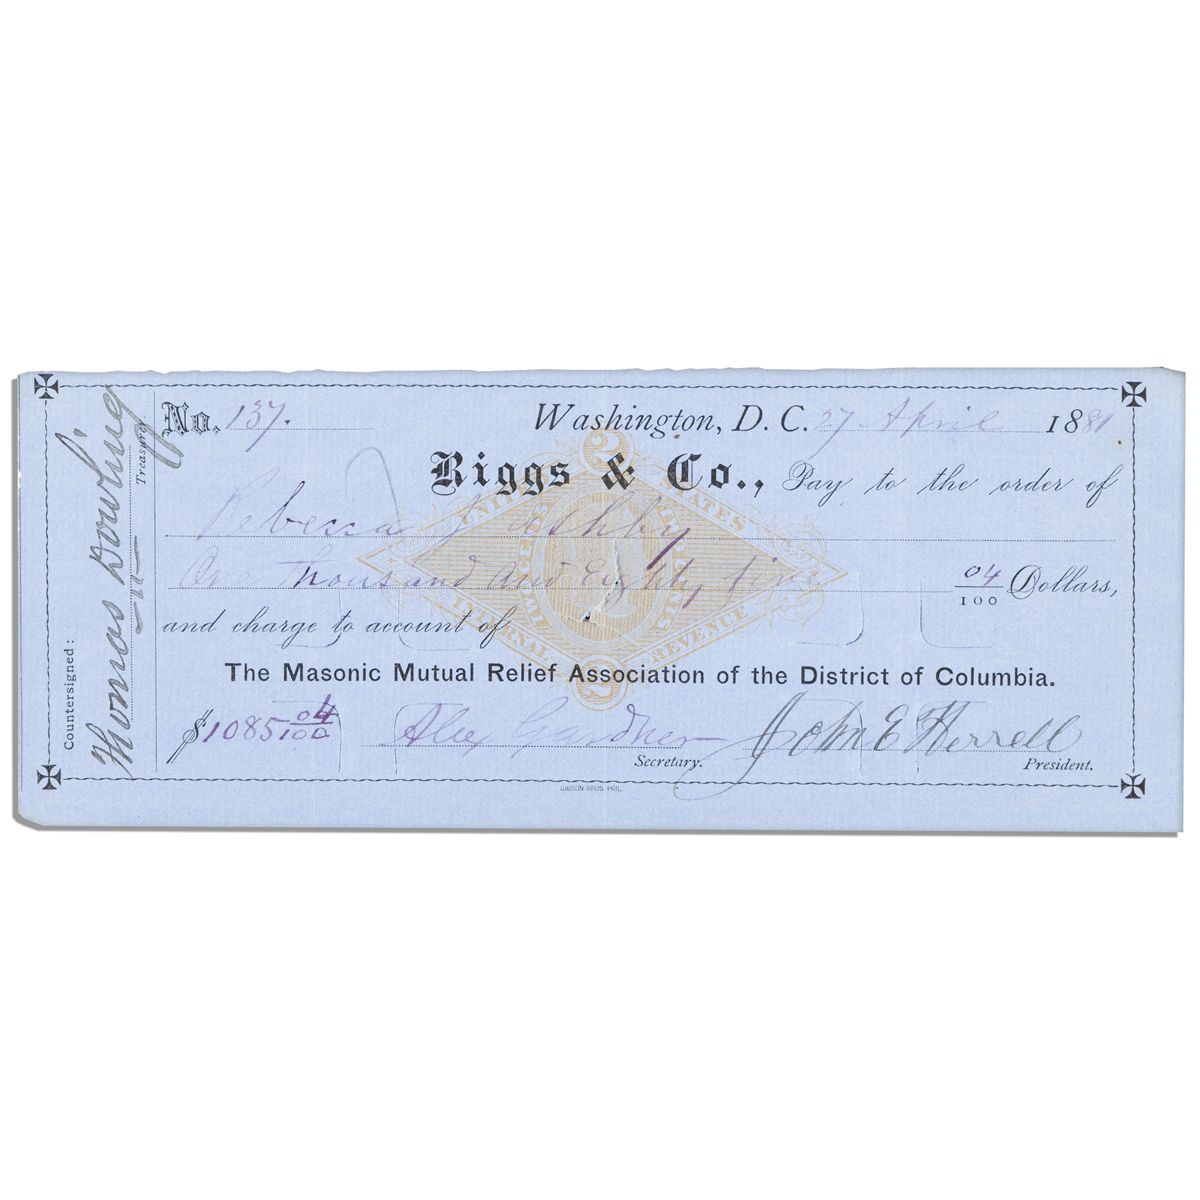 No. 137. Washington, D. C. 27 April 1881
Riggs & Co., Pay to the order of
Rebecca J Ashby
One Thousand and Eighty five 04/100 Dollars,
and charge to account of
The Masonic Mutual Relief Association of the District of Columbia.
$1085 04/100 Alex Gardner John E Herrell
Secretary. President.
GIBSON BROS. PRS.
Countersigned:
Thomas Dowling
Treasurer.
UNITED STATES
INTERNAL REVENUE
2
2